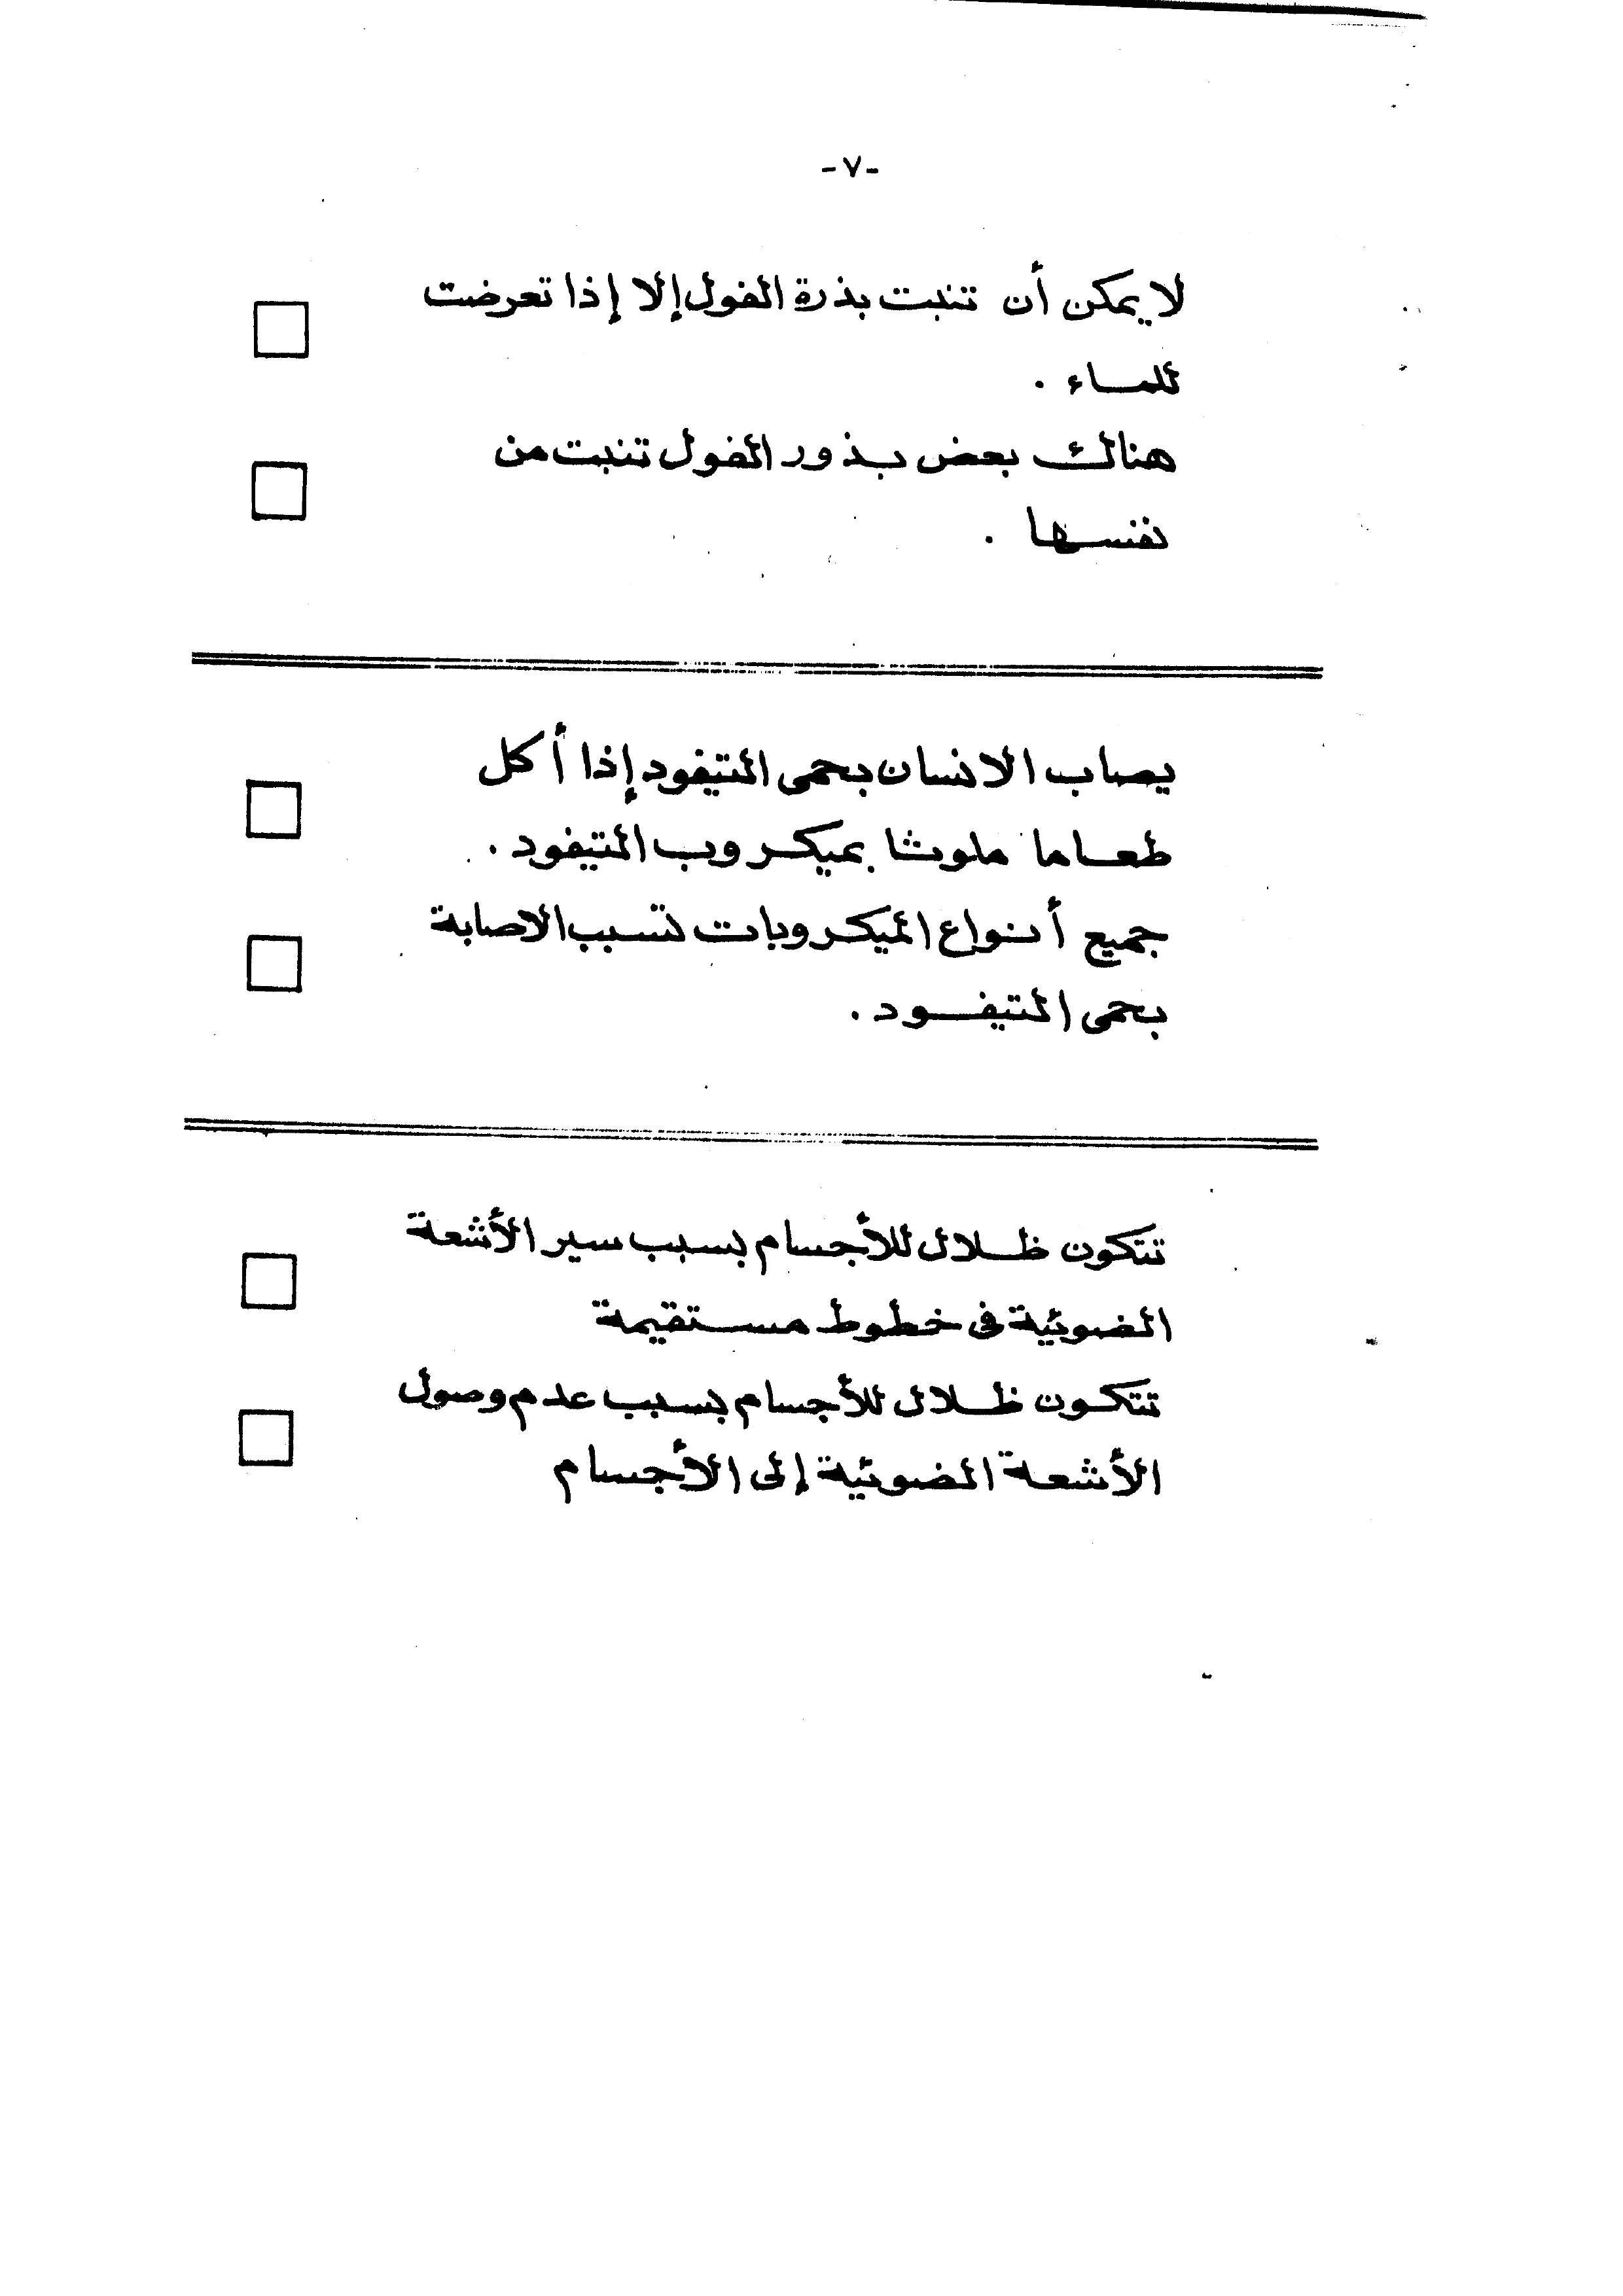 -٧-
لا يمكن أن تنبت بذرة الفول إلا إذا تعرضت
للماء .
هناك بعض بذور الفول تنبت من
نفسها .
يصاب الانسان بحمى التيفود إذا أكل
طعاما ملوثا بميكروب التيفود .
جميع أنواع الميكروبات تسبب الاصابة
بحمى التيفود .
تتكون ظلال للأجسام بسبب سير الأشعة
الضوئية فى خطوط مستقيمة
تتكون ظلال للأجسام بسبب عدم وصول
الأشعة الضوئية إلى الأجسام